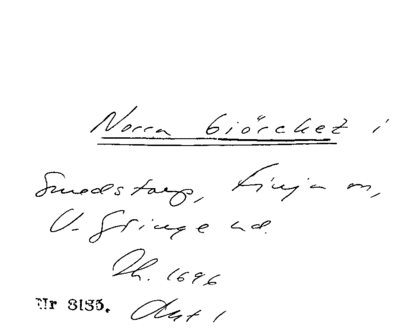 Norra biörcket i
Smedstorp, Finja sn,
V. Göinge hd.
Jb. 1696
Nr 3135. Avst 1